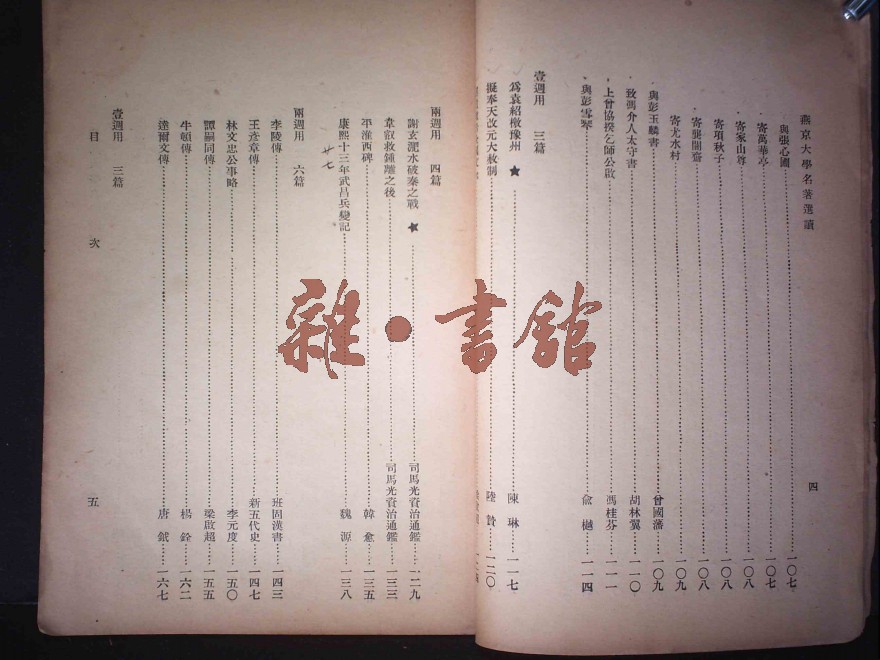 燕京大學名著選讀
四
與張心國 一〇七
寄萬華亭 一〇七
寄家山尊 一〇八
寄項秋子 一〇八
寄龔闇齋 一〇八
寄尤水村 一〇九
與彭玉麟書 曾國藩 一〇九
致馮介人太守書 胡林翼 一一〇
上曾協揆乞師公啟 馮桂芬 一一一
與彭雪琴 兪樾 一一四
壹週用 三篇
爲袁紹檄豫州 ★ 陳琳 一一七
擬奉天改元大赦制 陸贄 一二〇
兩週用 四篇
謝玄淝水破秦之戰 ★ 司馬光資治通鑑 一二九
韋叡救鍾離之後 司馬光資治通鑑 一三三
平淮西碑 韓愈 一三五
康熙十三年武昌兵變記 魏源 一三八
廿七
兩週用 六篇
李陵傳 班固漢書 一四三
王彥章傳 新五代史 一四七
林文忠公事略 李元度 一五〇
譚嗣同傳 梁啟超 一五五
牛頓傳 楊銓 一六二
達爾文傳 唐鉞 一六七
壹週用 三篇
目次
五
雜·書館